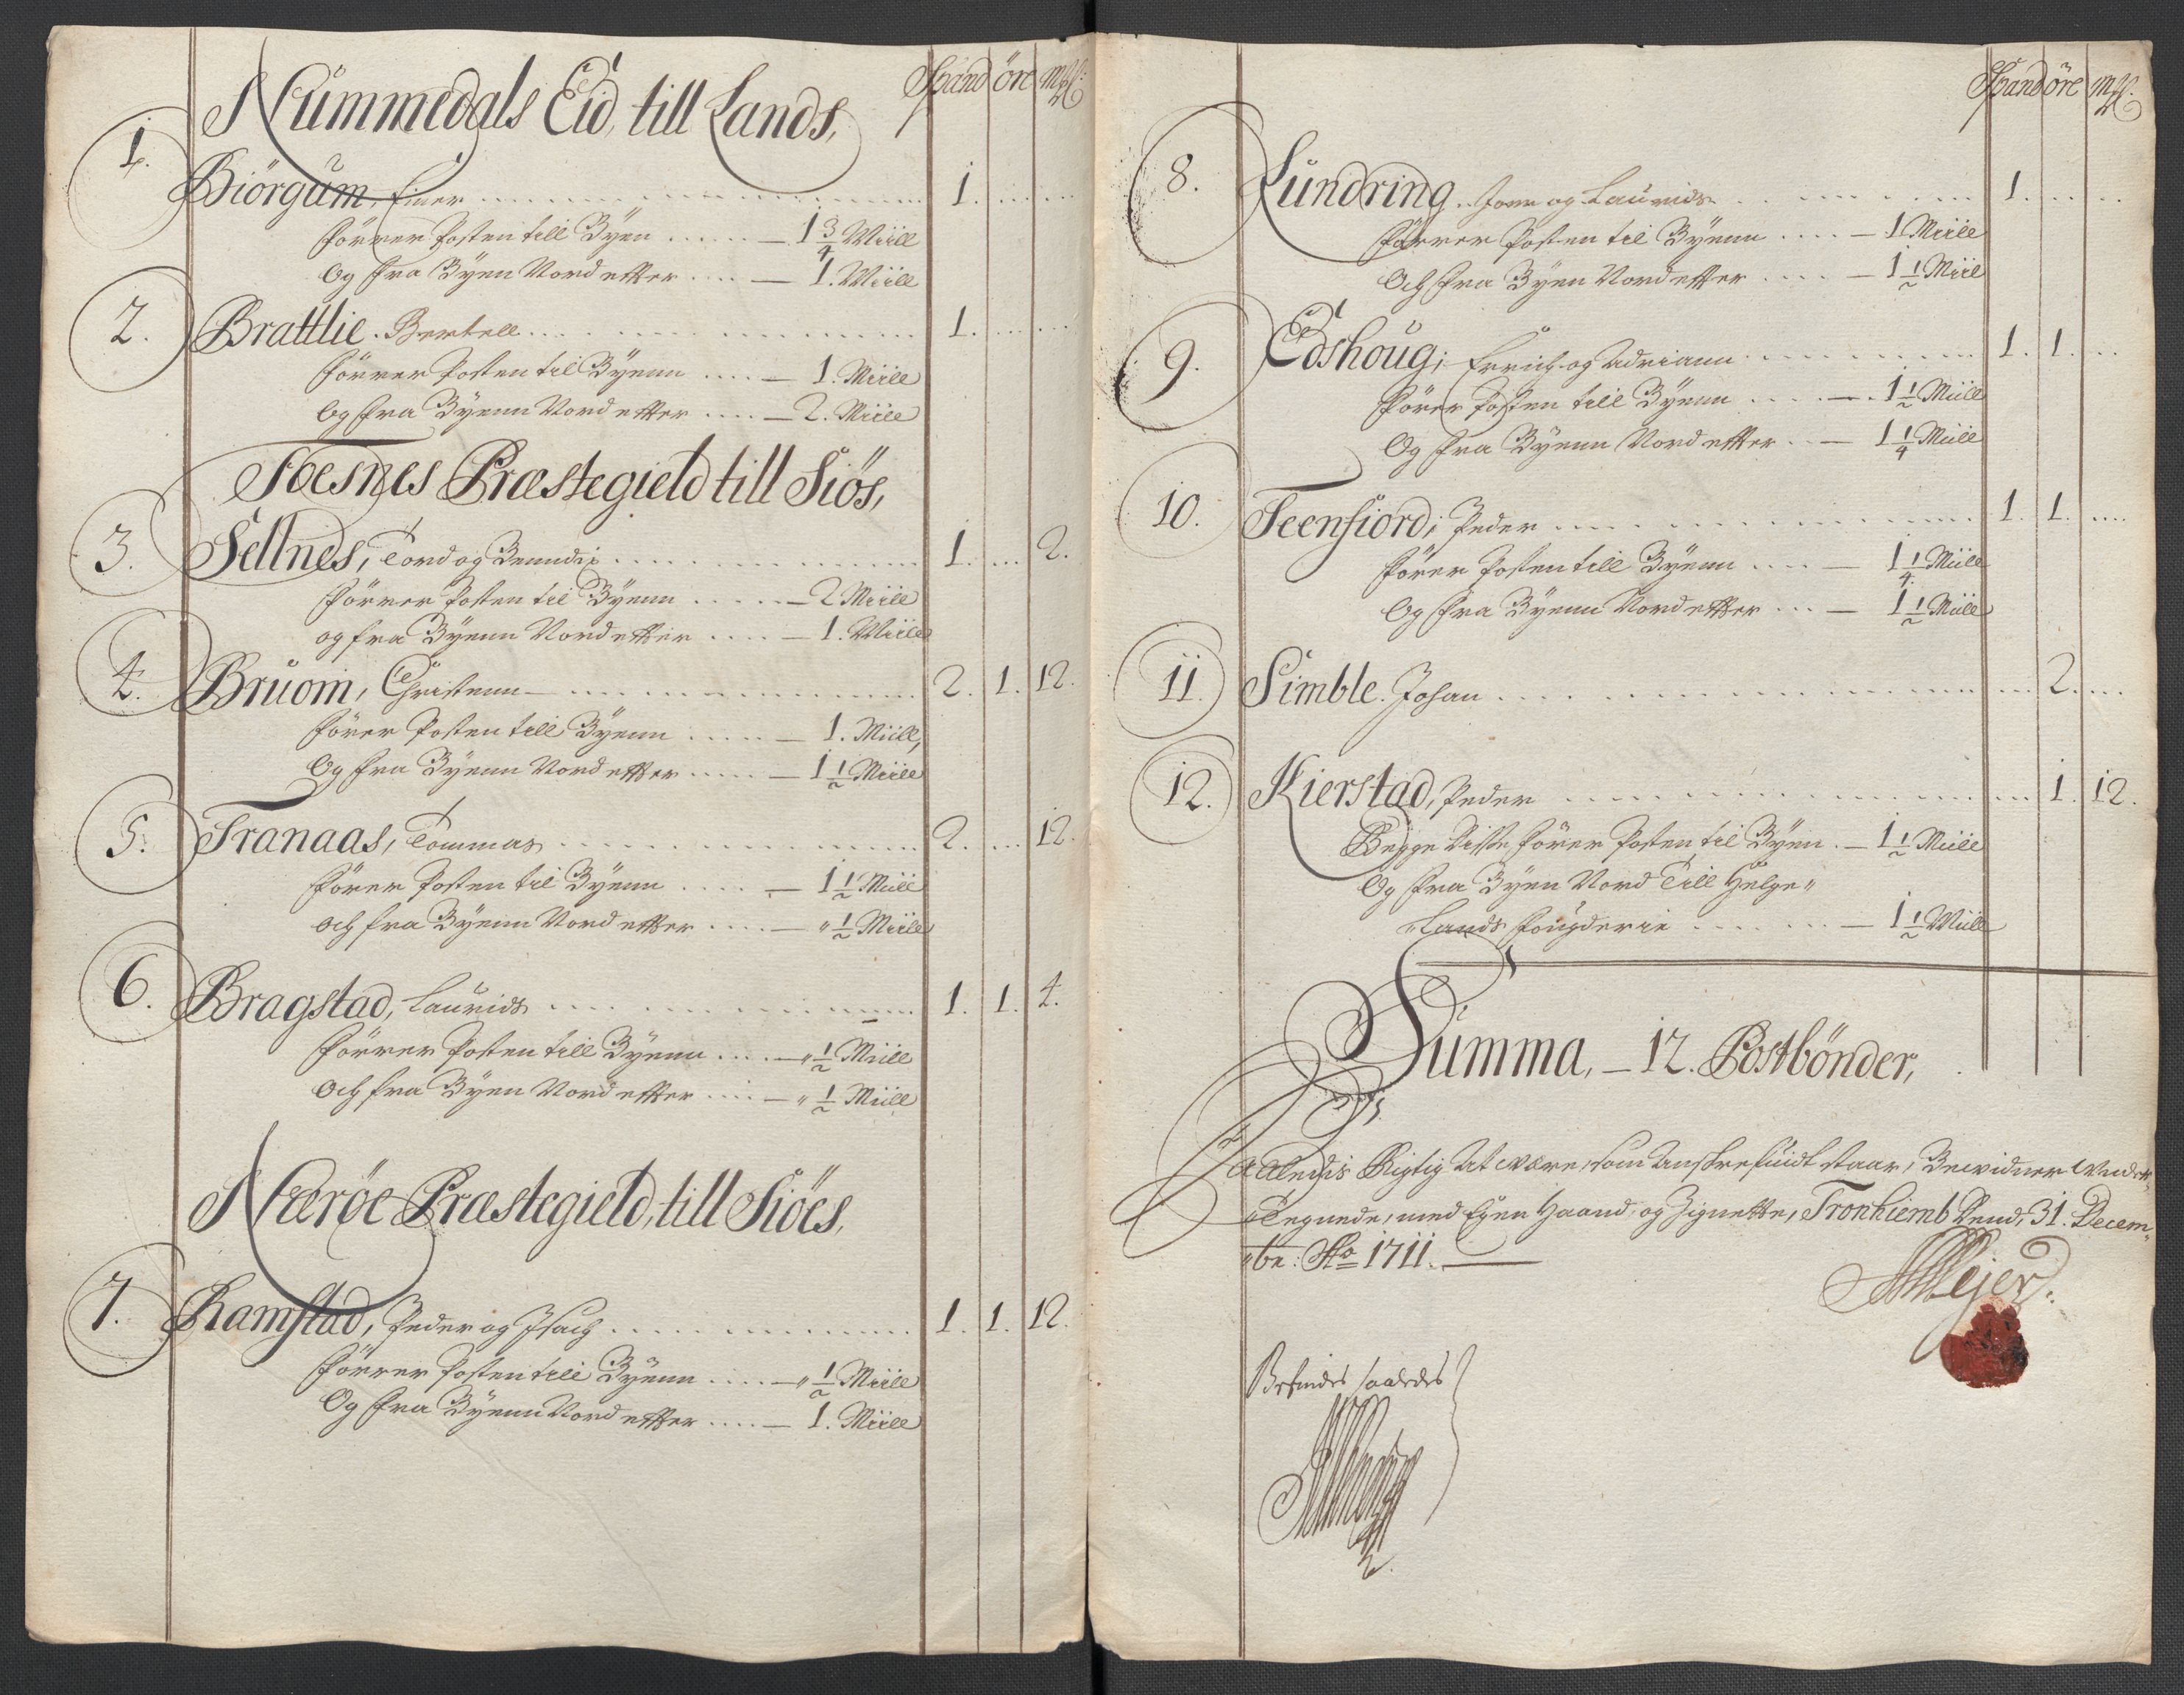 Spand öre mk
Nummedals Eid, till Lands,
1. Biörgum, Einer 1.
förrer Posten till Byen 1 3/4 Miill
Og fra Byen Nord effter 1. Miill
2. Brattlie. Bertell 1.
förrer Posten til Byenn 1. Miile
Og fra Byenn Nord effter 2. Miile
Foesnes Præstegield till Siös,
3. Sellnes, Tord og Benndix 1. 2.
förrer Posten til Byenn 2 Miile
og fra Byenn Nord effter 1. Miile
4. Bruom, Christenn 2. 1. 12.
förer Posten till Byenn 1. Miill,
Og fra Byenn Nord effter 1 1/2 Miile
5. Tranaas, Tommas 2. 12.
förer Posten til Byenn 1 1/2 Miill
och fra Byenn Nord effter " 1/2 Miile
6. Bragstad, Laurids 1. 1. 4.
förrer Posten till Byenn " 1/2 Miill
Och fra Byen Nord effter " 1/2 Miill
Nærøe Præstegield, till Siöes,
7. Ramstad, Peder og Isach 1. 1. 12.
förrer Posten till Byenn " 1/2 Miile
Og fra Byenn Nord effter 1. Miile
Spand öre mk
8. Lundring. Jonn og Laurids 1.
förrer Posten til Byenn 1 Miile
Och fra Byen Nord effter 1 1/2 Miil
9. Edshoug; Errich og Adriann 1. 1.
förer Posten till Byenn 1 1/2 Miill
Og fra Byenn Nord effter 1 1/4 Miile
10. Teenfiord; Peder 1. 1.
förer Posten till Byenn 1 1/4 Miile
Og fra Byenn Nord effter 1 1/2 Miile
11. Simble. Johan 2.
12. Kierstad, Peder 1. 12.
Begge Disse förer Posten til Byen. 1 1/2 Miile
Og fra Byen Nord Till Helge"
Lands fougderie 1 1/2 Miile
Summa, 12. Postbönder,
Saaledis Rigtig At være, som Anskrefuidt staar, Bevidner Under"
Tegnede, med Egen Haand, og Zignette, Tronhiemb Dend, 31. Decem"
"br: Ao 1711.
Mejer.
Befindes saaledes